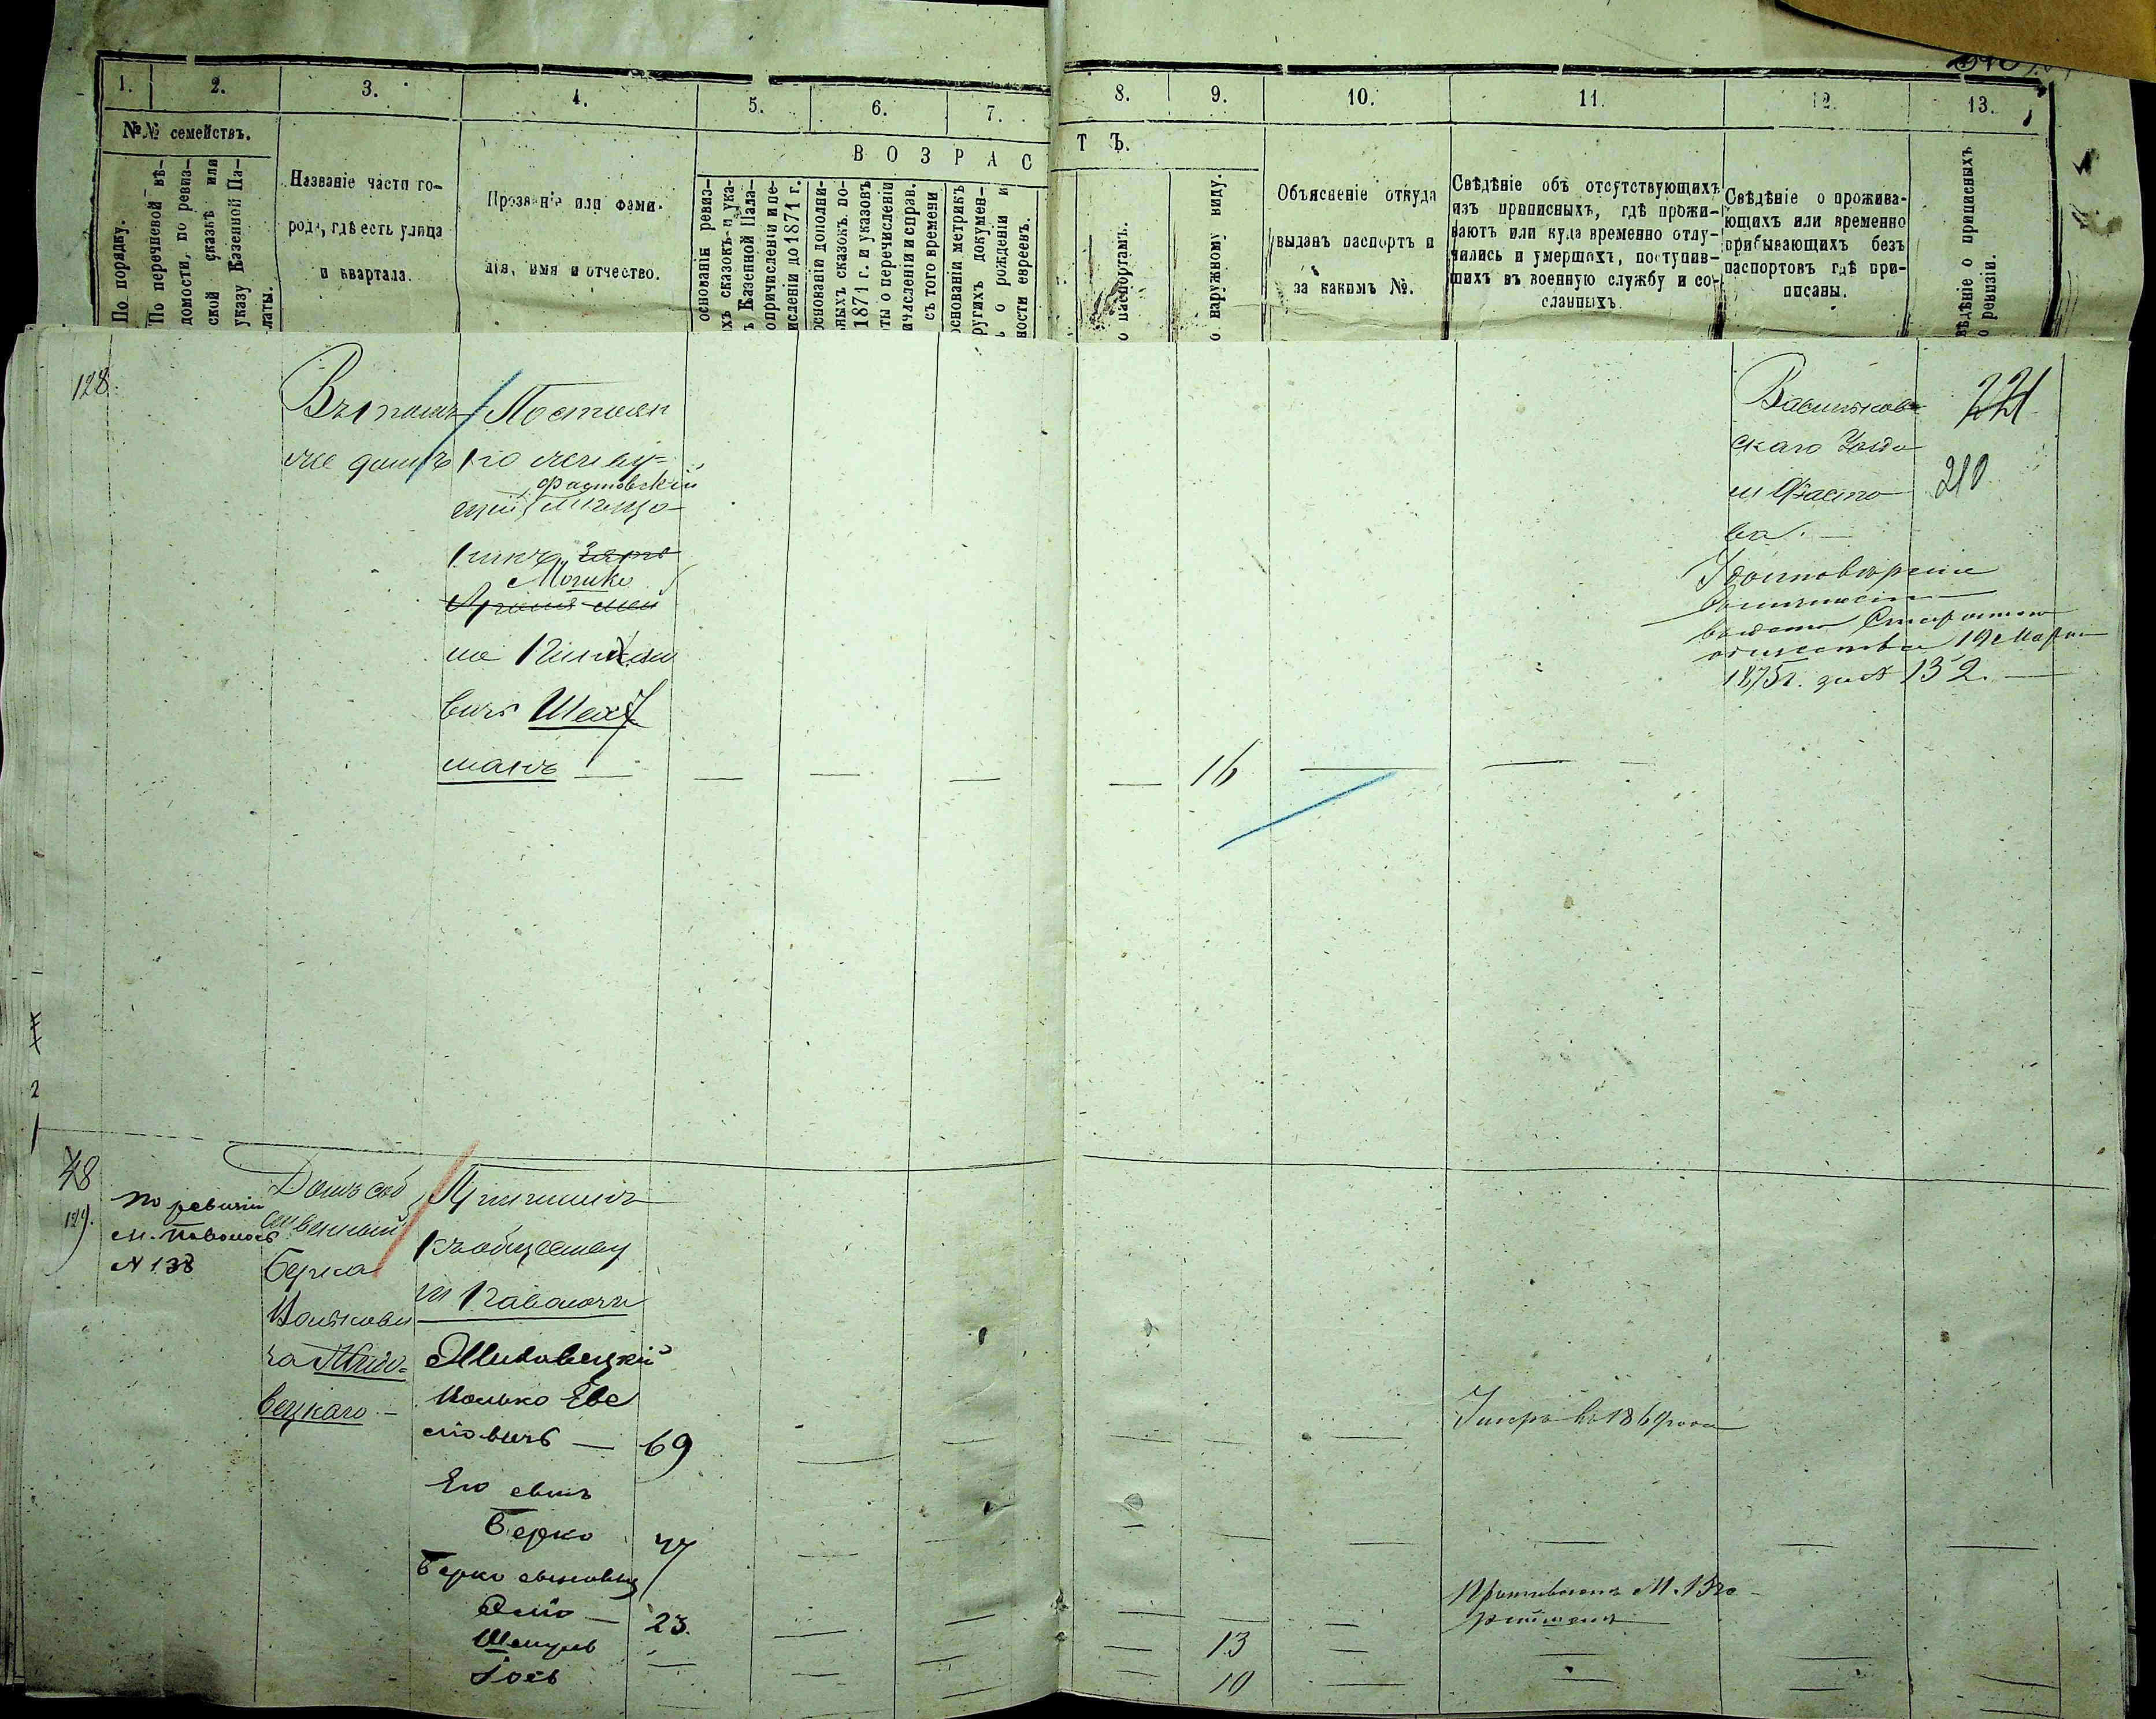 1.
2.
3.
4.
5.
6.
7.
8.
9.
10.
11.
12.
13.
№№ семействъ.
По порядку.
По перечневой вѣ-
домости, по ревиз-
ской сказкѣ или
указу Казенной Па-
латы.
Названіе части го-
рода, гдѣ есть улица
и квартала.
Прозваніе или фами-
лія, имя и отчество.
ВОЗРАС
ТЪ.
основаніи ревиз-
хъ сказокъ и ука-
ъ Казенной Пала-
опричисленіи и пе-
ислении до 1871 г.
основаніи дополни-
ныхъ сказокъ по-
1871 г. и указовъ
ты о перечисленіи
ичисленіи и справ.
съ того времени
основаніи метрикъ
ругихъ докумен-
ъ о рожденіи и
ности евреевъ.
о паспортамъ.
о наружному виду.
Объясненіе откуда
выданъ паспортъ и
за какимъ №.
Свѣдѣніе объ отсутствующихъ
изъ приписныхъ, гдѣ прожи-
ваютъ или куда временно отлу-
чились и умершихъ, поступив-
шихъ въ военную службу и со-
сланныхъ.
Свѣдѣніе о прожива-
ющихъ или временно
прибывающихъ безъ
паспортовъ гдѣ при-
писаны.
вѣдѣніе о приписныхъ
о ревизіи.
128.
Въ томъ
же домѣ
Постоян
но живу-
щій
Фастовскій
мѣща-
нинъ
Мошко
вичъ Шех
манъ
16
Васильков
скаго Уѣзда
м Фасто
ва. —
221
210
19 Марта
1875 г. за № 132. —
48
129.
По ревизіи
м. Паволочь
№ 138
Домъ соб
ственный
Берка
Волькови
ча Мидо-
вецкаго. —
Приписанъ
къ обществу
м Паволочи
Мидовецкій
Волько Еве
ліовичъ — 69
Его сынъ
Берко 47
Берко сыновья
23.
Шмуль 13
10
Умеръ въ 1869 года
Проживаетъ М.